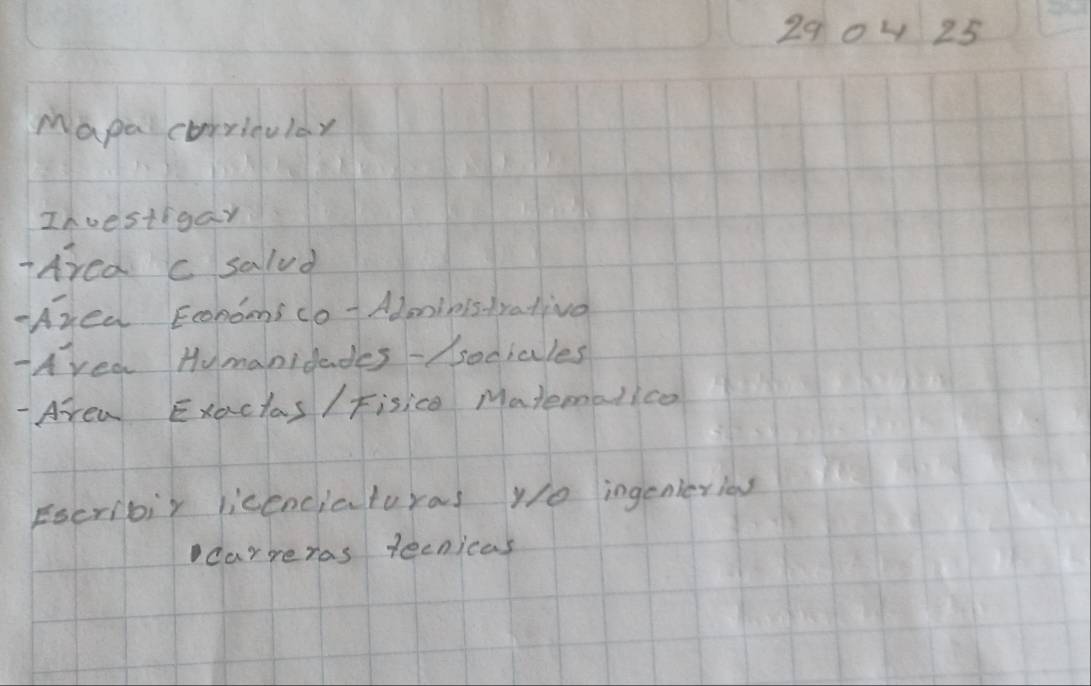 29 04 25
Mapa curricular
Investigar
- Área C salud
- Área Económico - Administrativo
- Área Humanidades -/sociales
- Área Exactas / Fisico Matematico
Escribir licenciaturas y/o ingenierias
carreras tecnicas